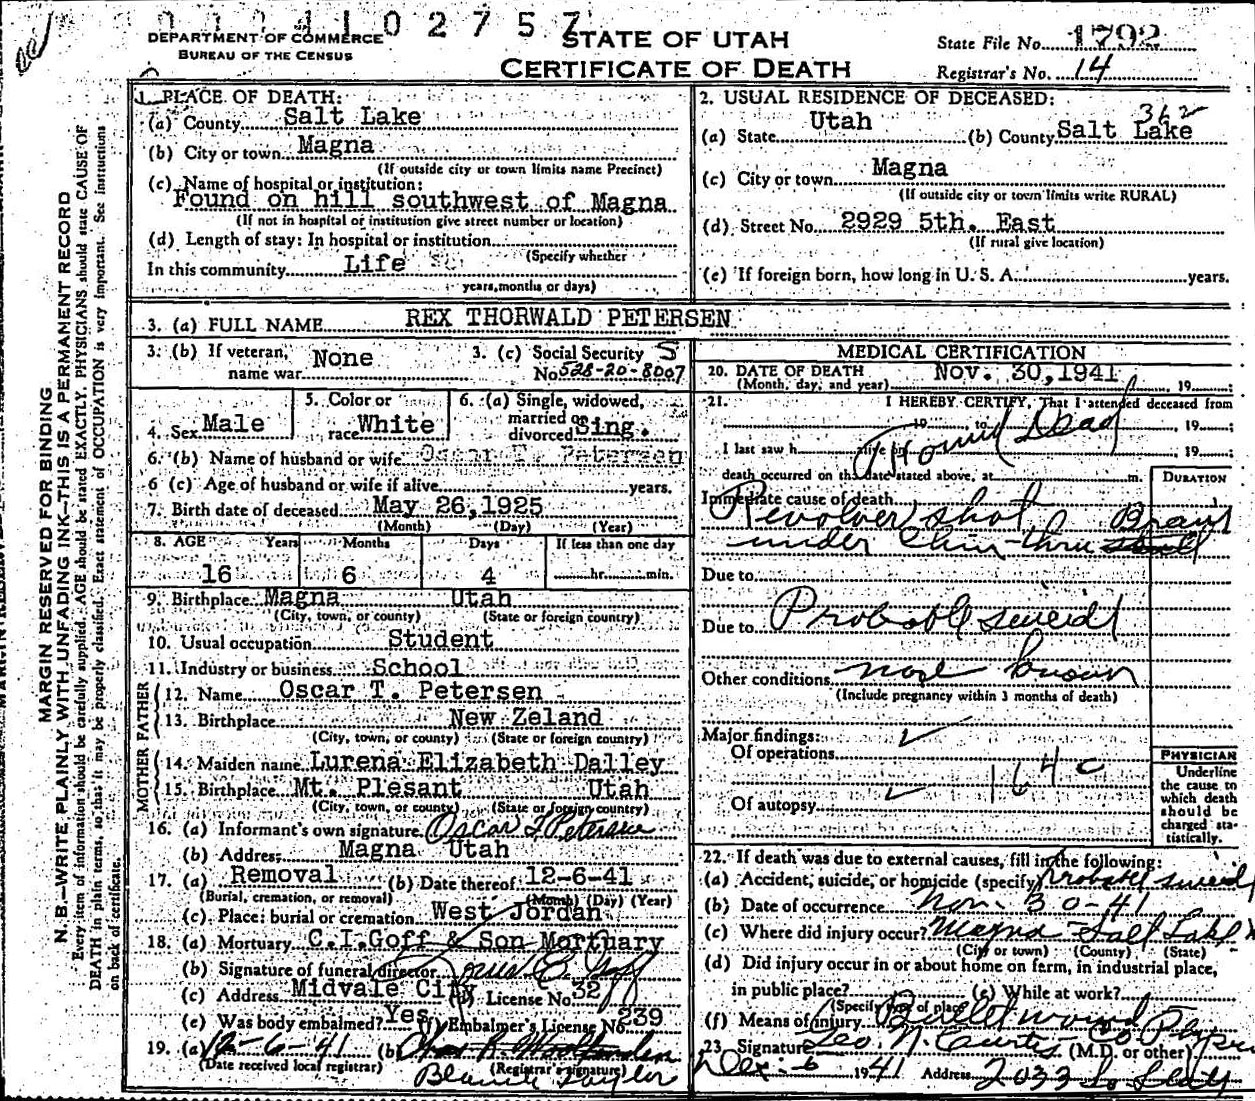 0 1 2 4 1 0 2 7 5 7
DEPARTMENT OF COMMERCE
BUREAU OF THE CENSUS
STATE OF UTAH
CERTIFICATE OF DEATH
State File No. 1792
Registrar's No. 14
MARGIN RESERVED FOR BINDING
N. B.—WRITE PLAINLY WITH UNFADING INK—THIS IS A PERMANENT RECORD
Every item of information should be carefully supplied. AGE should be stated EXACTLY. PHYSICIANS should state CAUSE OF
DEATH in plain terms, so that it may be properly classified. Exact statement of OCCUPATION is very important. See instructions
on back of certificate.
1. PLACE OF DEATH:
(a) County Salt Lake
(b) City or town Magna
(If outside city or town limits name Precinct)
(c) Name of hospital or institution:
Found on hill southwest of Magna
(If not in hospital or institution give street number or location)
(d) Length of stay: In hospital or institution
(Specify whether
In this community Life
years, months or days)
2. USUAL RESIDENCE OF DECEASED:
362
(a) State Utah (b) County Salt Lake
(c) City or town Magna
(If outside city or town limits write RURAL)
(d) Street No. 2929 5th. East
(If rural give location)
(e) If foreign born, how long in U. S. A. years.
3. (a) FULL NAME REX THORWALD PETERSEN
3. (b) If veteran, name war None
3. (c) Social Security No 528-20-8007
4. Sex Male
5. Color or race White
6. (a) Single, widowed, married or divorced Sing.
6. (b) Name of husband or wife Oscar T. Petersen
6 (c) Age of husband or wife if alive years.
7. Birth date of deceased May 26,1925
(Month) (Day) (Year)
8. AGE Years Months Days If less than one day
16 6 4 hr. min.
9. Birthplace Magna Utah
(City, town, or county) (State or foreign country)
10. Usual occupation Student
11. Industry or business School
FATHER
12. Name Oscar T. Petersen
13. Birthplace New Zeland
(City, town, or county) (State or foreign country)
MOTHER
14. Maiden name Lurena Elizabeth Dalley
15. Birthplace Mt. Plesant Utah
(City, town, or county) (State or foreign country)
16. (a) Informant's own signature Oscar T Petersen
(b) Address Magna Utah
17. (a) Removal (b) Date thereof 12-6-41
(Burial, cremation, or removal) (Month) (Day) (Year)
(c) Place: burial or cremation West Jordan
18. (a) Mortuary C.I.Goff & Son Mortuary
(b) Signature of funeral director Goff
(c) Address Midvale City (d) License No. 32
(e) Was body embalmed? Yes (f) Embalmer's License No 239
19. (a) 12-6-41 (b)
(Date received local registrar) (Registrar's signature)
Blanche Taylor
MEDICAL CERTIFICATION
20. DATE OF DEATH
(Month, day, and year) Nov. 30,1941, 19
21. I HEREBY CERTIFY, That I attended deceased from
19 , to , 19
Found Dead
I last saw h alive on , 19
death occurred on the date stated above, at m.
DURATION
Immediate cause of death
Revolver shot Brain
under Chin-thru skull
Due to
Due to Probable suicide
Other conditions none known
(Include pregnancy within 3 months of death)
Major findings:
Of operations
164c
Of autopsy
PHYSICIAN
Underline
the cause to
which death
should be
charged sta-
tistically.
22. If death was due to external causes, fill in the following:
(a) Accident, suicide, or homicide (specify) Probable suicide
(b) Date of occurrence Nov. 30-41
(c) Where did injury occur? Magna Salt Lake
(City or town) (County) (State)
(d) Did injury occur in or about home on farm, in industrial place,
in public place? (e) While at work?
(Specify type of place)
(f) Means of injury Bullet wound
23. Signature Geo. N. Curtis Co Physician
(M.D. or other)
Dec. 6 1941 Address 2033 So State